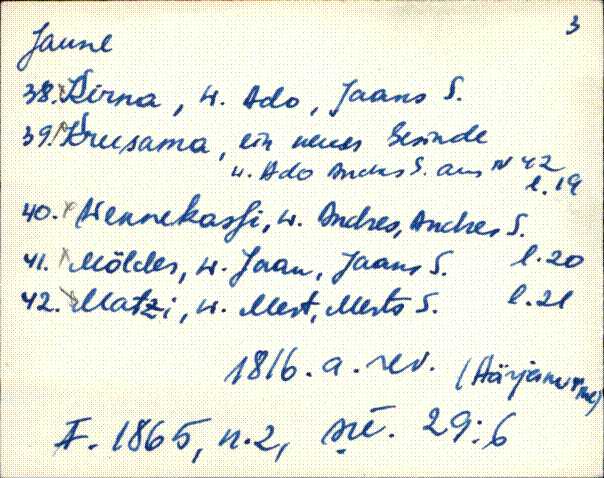 3
Jaune
38. Kirna, W. Ado, Jaans S.
39. Krusama, ein neues Gesinde
W. Ado Andres S. aus N 42
l. 19
40. Wennekassi, W. Andres, Andres S.
41. Mölder, W. Jaan, Jaans S. l. 20
42. Matzi, W. Mert, Merts S. l. 21
1816. a. rev. (Härjanurme)
F. 1865, n. 2, sü. 29:6